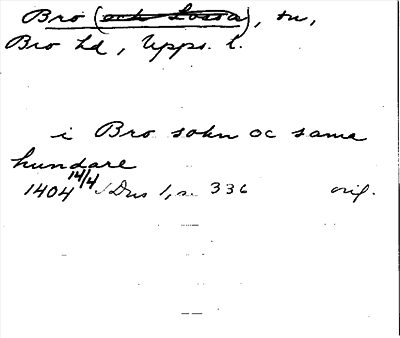 Bro (och Lossa), sn,
Bro hd, Upps. l.
i Bro sokn oc same
hundare
1404 14/4 Dns 1, s. 336 orig.